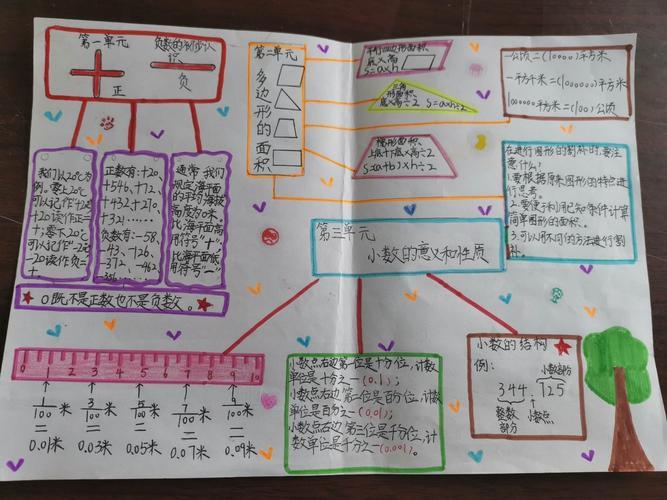 第一单元
负数的初步认
识
正
负
我们以20℃为
例。零上20℃
可以记作+20
+20读作正二
十,零下20℃
可以记作-20
-20读作负二
十
正数有:+20、
+546、+12、
+432+210、
+321……
负数有:-58、
-43、-126、
-372、-462、
通常,我们
规定海平面
的平均海拔
高度为0米。
比海平面高
用符号"+",
比海平面低
用符号"-"
0既不是正数也不是负数。
第二单元
多边形的面积
平行四边形面积、
底×高
S=a×h
三角
形面积、
底×高÷2
S=a×h÷2
梯形面积、
上底+下底×高÷2
S=(a+b)×h÷2
一公顷=(10000)平方米
一平方千米=(1000000)平方米
1000000平方米=(100)公顷
在进行图形的割补时,要注
意什么?
1.要根据原来图形的特点进
行思考。
2.要便于利用已知条件计算
简单图形的面积。
3.可以用不同的方法进行割
补。
第三单元
小数的意义和性质
0 1 2 3 4 5 6 7 8 9 10
1/100米 3/100米 5/100米 7/100米 9/100米
= = = = =
0.01米 0.03米 0.05米 0.07米 0.09米
小数点右边第一位是十分位,计数
单位是十分之一(0.1);
小数点右边第二位是百分位,计数
单位是百分之一(0.01);
小数点右边第三位是千分位,计
数单位是千分之一(0.001)。
小数的结构
例:
小数部分
344.125
整数
部分
小数点